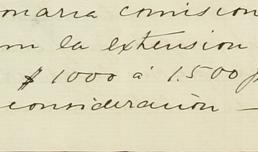 onaria comision
om la extension
$ 1000 á 1.500 p
consideración —